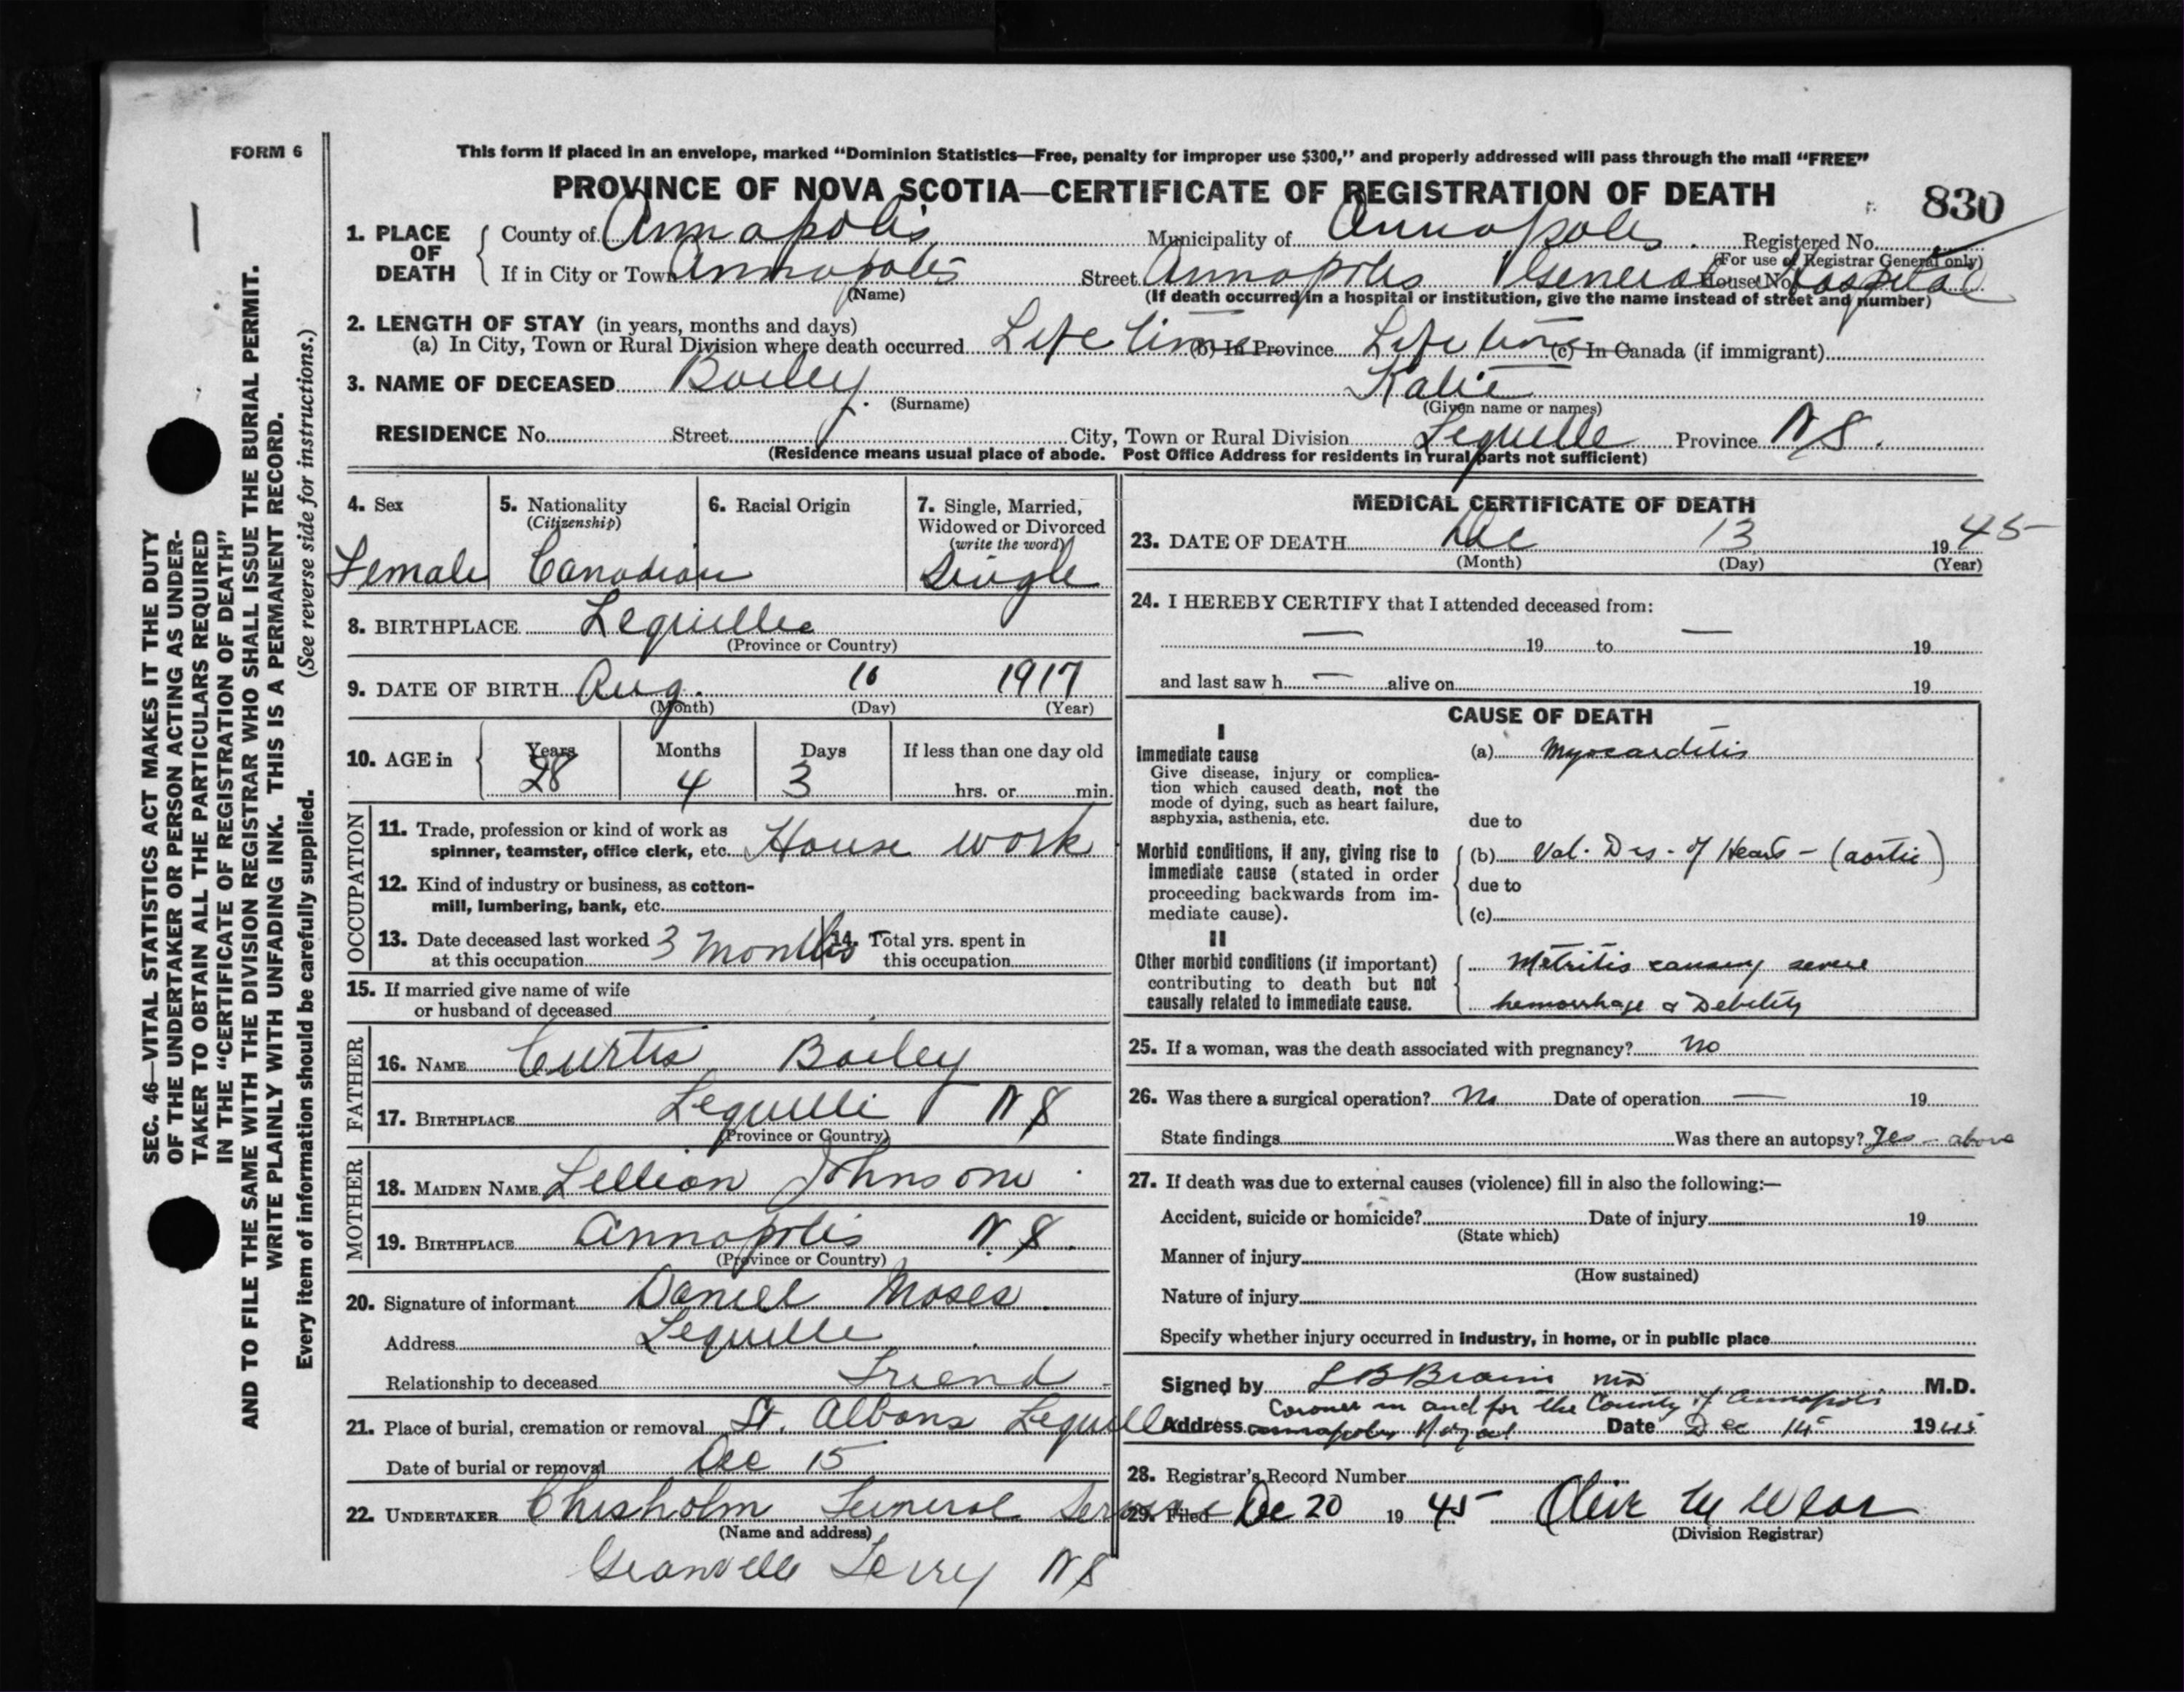 FORM 6
This form if placed in an envelope, marked “Dominion Statistics—Free, penalty for improper use $300,” and properly addressed will pass through the mail “FREE”
PROVINCE OF NOVA SCOTIA—CERTIFICATE OF REGISTRATION OF DEATH
830
1. PLACE OF DEATH County of Annapolis Municipality of Annapolis Registered No.
(For use of Registrar General only)
If in City or Town Annapolis Street Annapolis General Hospital House No.
(Name) (If death occurred in a hospital or institution, give the name instead of street and number)
2. LENGTH OF STAY (in years, months and days)
(a) In City, Town or Rural Division where death occurred Life time (b) In Province Life time (c) In Canada (if immigrant)
3. NAME OF DECEASED Bailey Katie
(Surname) (Given name or names)
RESIDENCE No. Street City, Town or Rural Division Lequille Province N S.
(Residence means usual place of abode. Post Office Address for residents in rural parts not sufficient)
4. Sex Female
5. Nationality (Citizenship) Canadian
6. Racial Origin
7. Single, Married, Widowed or Divorced (write the word) Single
8. BIRTHPLACE Lequille
(Province or Country)
9. DATE OF BIRTH Aug. 10 1917
(Month) (Day) (Year)
10. AGE in Years 28 Months 4 Days 3 If less than one day old
hrs. or min.
OCCUPATION
11. Trade, profession or kind of work as
spinner, teamster, office clerk, etc. House work
12. Kind of industry or business, as cotton-
mill, lumbering, bank, etc.
13. Date deceased last worked at this occupation 3 months 14. Total yrs. spent in this occupation
15. If married give name of wife
or husband of deceased
FATHER
16. NAME Curtis Bailey
17. BIRTHPLACE Lequille N S
(Province or Country)
MOTHER
18. MAIDEN NAME Lillian Johnson
19. BIRTHPLACE Annapolis N. S.
(Province or Country)
20. Signature of informant Daniel Moses
Address Lequille
Relationship to deceased Friend
21. Place of burial, cremation or removal St. Albans Lequille
Date of burial or removal Dec 15
22. UNDERTAKER Chisholm Funeral Service
(Name and address)
Granville Ferry N S
MEDICAL CERTIFICATE OF DEATH
23. DATE OF DEATH Dec 13 1945
(Month) (Day) (Year)
24. I HEREBY CERTIFY that I attended deceased from:
— 19 to — 19
and last saw h — alive on 19
CAUSE OF DEATH
I
Immediate cause (a) Myocarditis
Give disease, injury or complica-
tion which caused death, not the
mode of dying, such as heart failure,
asphyxia, asthenia, etc.
due to
Morbid conditions, if any, giving rise to (b) Val. Dis. of Heart – (aortic)
immediate cause (stated in order
proceeding backwards from im-
mediate cause).
due to
(c)
II
Other morbid conditions (if important) Metritis causing severe
contributing to death but not
causally related to immediate cause. hemorrhage & Debility
25. If a woman, was the death associated with pregnancy? No
26. Was there a surgical operation? No Date of operation — 19
State findings Was there an autopsy? Yes – above
27. If death was due to external causes (violence) fill in also the following:—
Accident, suicide or homicide? Date of injury 19
(State which)
Manner of injury
(How sustained)
Nature of injury
Specify whether injury occurred in industry, in home, or in public place
Signed by L B Braine MD M.D.
Coroner in and for the County of Annapolis
Address Annapolis Royal Date Dec 14 1945
28. Registrar's Record Number
29. Filed Dec 20 1945
(Division Registrar)
SEC. 46—VITAL STATISTICS ACT MAKES IT THE DUTY
OF THE UNDERTAKER OR PERSON ACTING AS UNDER-
TAKER TO OBTAIN ALL THE PARTICULARS REQUIRED
IN THE “CERTIFICATE OF REGISTRATION OF DEATH”
AND TO FILE THE SAME WITH THE DIVISION REGISTRAR WHO SHALL ISSUE THE BURIAL PERMIT.
WRITE PLAINLY WITH UNFADING INK. THIS IS A PERMANENT RECORD.
Every item of information should be carefully supplied. (See reverse side for instructions.)